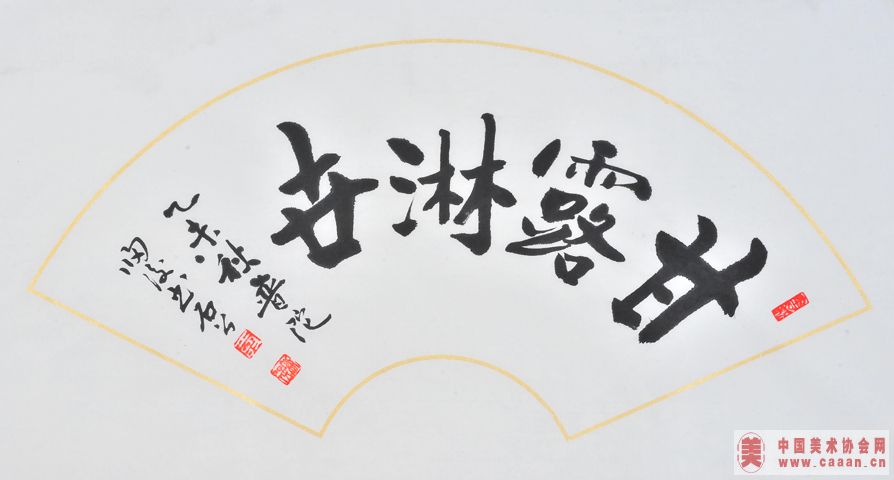 甘露淋世
乙未秋普陀
美
中国美术协会网
www.caaan.cn